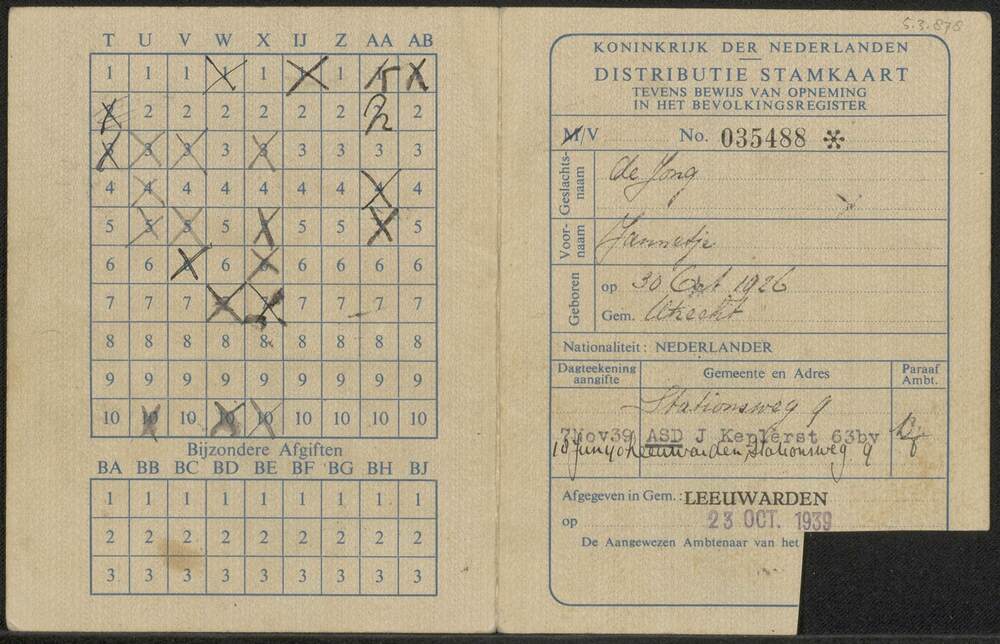 T U V W X IJ Z AA AB
1 1 1 1 1 1 1 1
2 2 2 2 2 2 2 2
3 3 3 3 3 3 3 3 3
4 4 4 4 4 4 4 4 4
5 5 5 5 5 5 5 5
6 6 6 6 6 6 6 6 6
7 7 7 7 7 7 7 7 7
8 8 8 8 8 8 8 8 8
9 9 9 9 9 9 9 9 9
10 10 10 10 10 10 10 10 10
Bijzondere Afgiften
BA BB BC BD BE BF BG BH BJ
1 1 1 1 1 1 1 1 1
2 2 2 2 2 2 2 2 2
3 3 3 3 3 3 3 3 3
5.3.878
KONINKRIJK DER NEDERLANDEN
DISTRIBUTIE STAMKAART
TEVENS BEWIJS VAN OPNEMING
IN HET BEVOLKINGSREGISTER
M/V No. 035488 ✲
Geslachts-
naam
de Jong
Voor-
naam
Jannetje
Geboren
op 30 Oct 1926
Gem. Utrecht
Nationaliteit: NEDERLANDER
Dagteekening
aangifte
Gemeente en Adres
Paraaf
Ambt.
Stationsweg 9
7Nov39 ASD J Keplerst 63bv
18 Juny 40 Leeuwarden, Stationsweg 9
Afgegeven in Gem.: LEEUWARDEN
op 23 OCT. 1939
De Aangewezen Ambtenaar van het